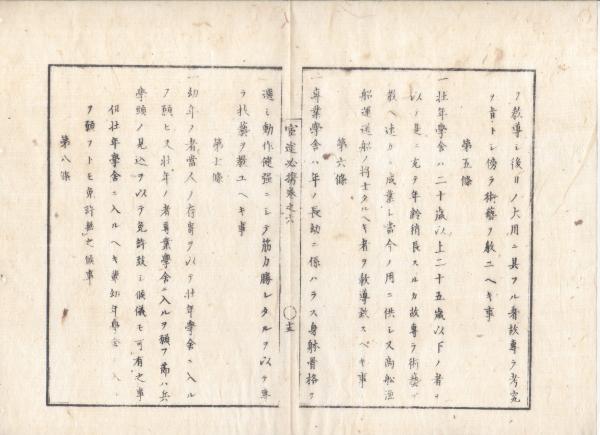 ヲ教導シ後日ノ大用ニ具フル者故専ラ考究
ヲ旨トシ傍ラ術藝ヲ教ユヘキ事
第五條
一壮年學舎ハ二十歳以上二十五歳以下ノ者ヲ
以ノ是ニ充テ年齢稍長スルカ故専ラ術藝ヲ
教ヘ速カニ成業シ當今ノ用ニ供シ又商船運
船運送船ノ将士タルヘキ者ヲ教導致スベキ事
第六條
一専業學舎ハ年ノ長幼ニ係ハラス身躰骨格ヲ
官途必携巻之六
十五
選ミ動作健强ニシテ筋力勝レタルヲ以テ専
ラ技藝ヲ教ユヘキ事
第七條
一幼年ノ者當人ノ存寄ヲ以テ壮年學舎ニ入ル
ヲ願ヒ又壮年ノ者専業學舎ニ入ルヲ願フ節ハ兵
學頭ノ見込ヲ以テ免許致シ候儀モ可有之事
但壮年學舎ニ入ルヘキ者幼年學舎ニ入
ヲ願フトモ免許無之候事
第八條